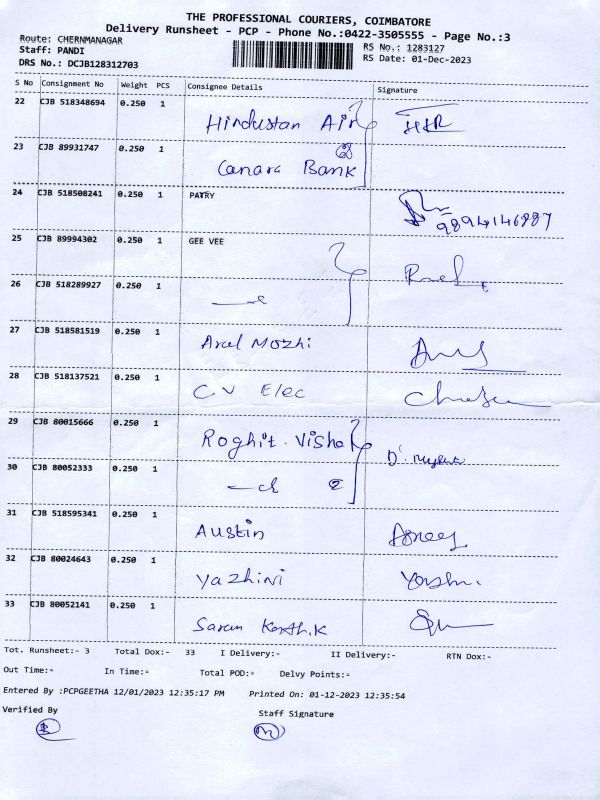 THE PROFESSIONAL COURIERS, COIMBATORE
Delivery Runsheet - PCP - Phone No.:0422-3505555 - Page No.:3
Route: CHERNMANAGAR
Staff: PANDI
RS No.: 1283127
DRS No.: DCJB128312703
RS Date: 01-Dec-2023
S No Consignment No Weight PCS Consignee Details Signature
22 CJB 518348694 0.250 1 Hindustan Air
23 CJB 89931747 0.250 1 Canara Bank
24 CJB 518508241 0.250 1 PATRY 9894146887
25 CJB 89994302 0.250 1 GEE VEE
26 CJB 518289927 0.250 1
27 CJB 518581519 0.250 1 Arul Mozhi
28 CJB 518137521 0.250 1 CV Elec
29 CJB 80015666 0.250 1 Roghit. Visha
30 CJB 80052333 0.250 1
31 CJB 518595341 0.250 1 Austin
32 CJB 80024643 0.250 1 Yazhini
33 CJB 80052141 0.250 1 Saran Karthik
Tot. Runsheet:- 3 Total Dox:- 33 I Delivery:- II Delivery:- RTN Dox:-
Out Time:- In Time:- Total POD:- Delvy Points:-
Entered By :PCPGEETHA 12/01/2023 12:35:17 PM Printed On: 01-12-2023 12:35:54
Verified By Staff Signature